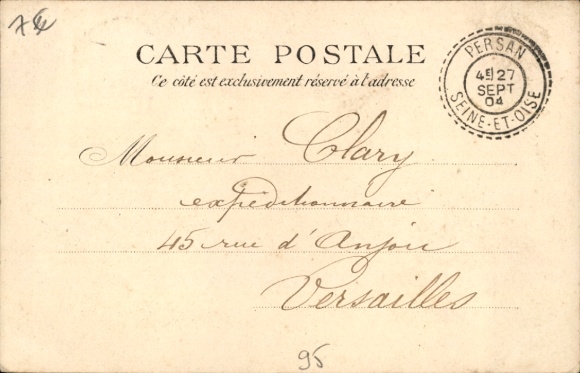 CARTE POSTALE
Ce côté est exclusivement réservé à l'adresse
PERSAN
4E 27
SEPT
04
SEINE-ET-OISE
Monsieur Clary
expéditionnaire
45 rue d'Anjou
Versailles
95